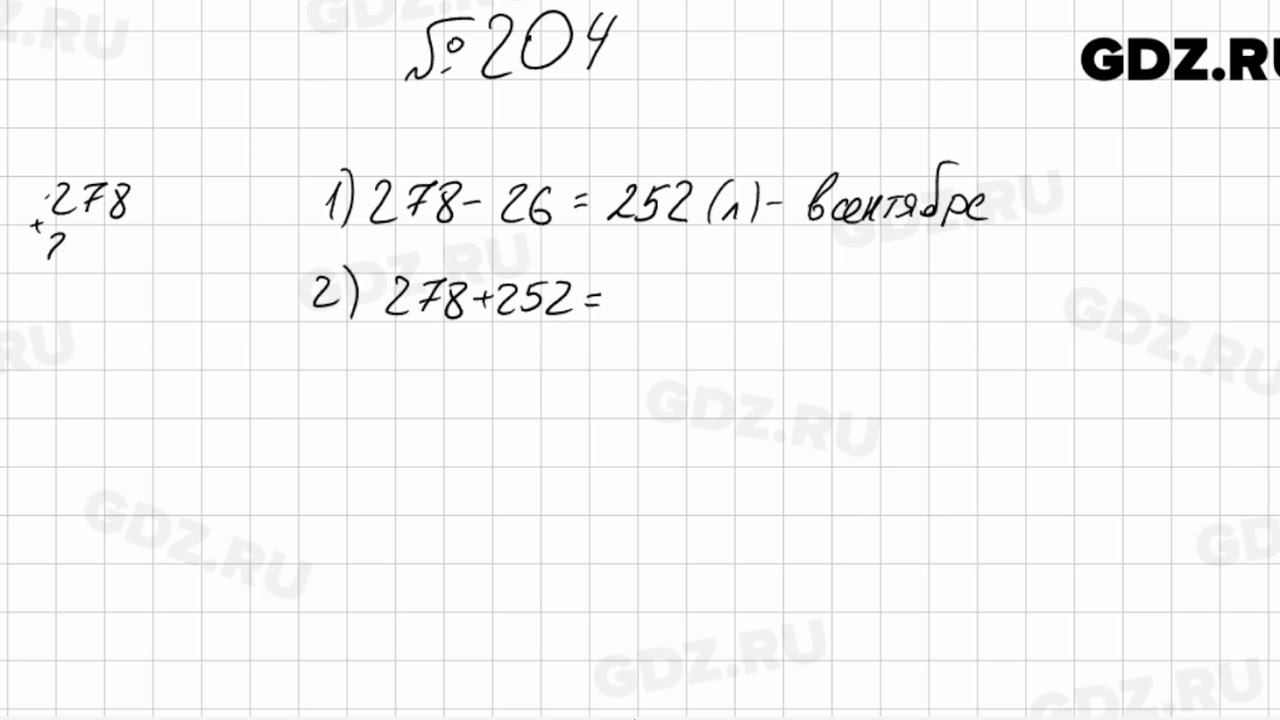 № 204
GDZ.RU
278
+
2
1) 278 - 26 = 252 (л) - в сентябре
2) 278 + 252 =
GDZ.RU
GDZ.RU
GDZ.RU
GDZ.RU
GDZ.RU
GDZ.RU
GDZ.RU
GDZ.RU
GDZ.RU
GDZ.RU